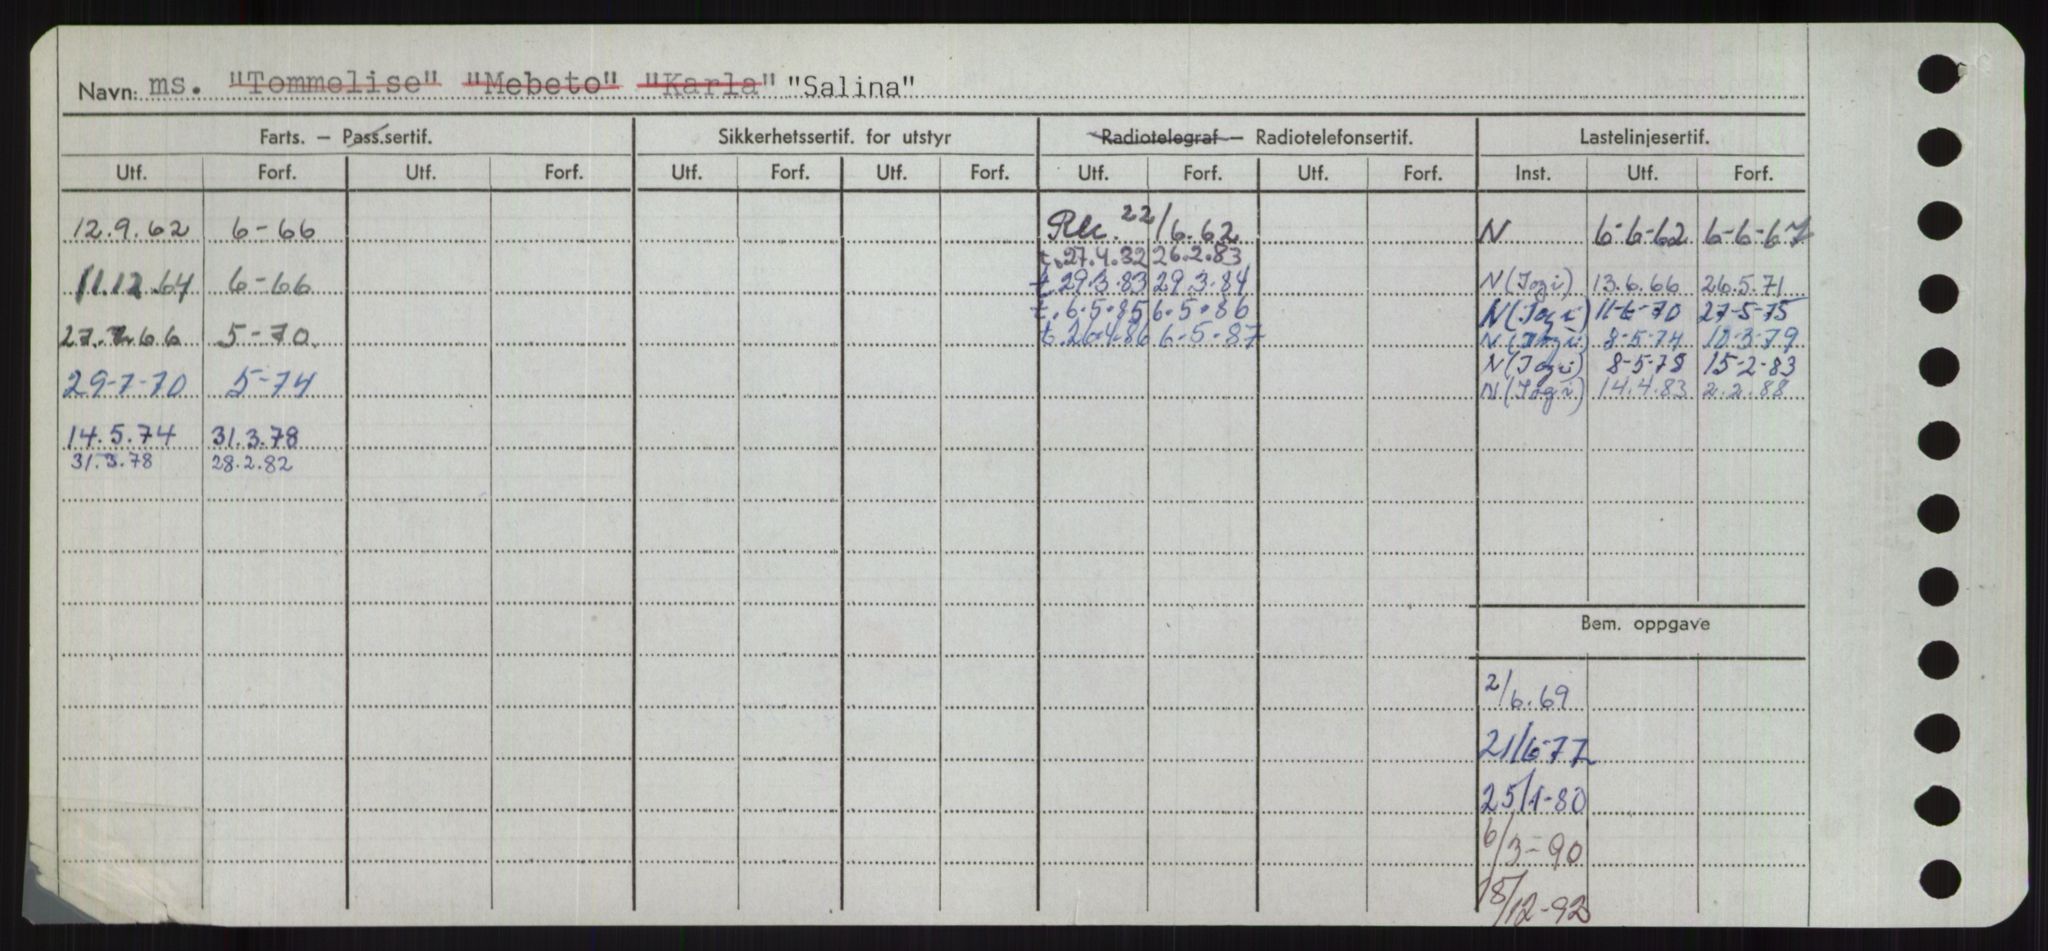 Navn: ms. "Tommelise" "Mebeto" "Karla" "Salina"
Farts. — Pass.sertif. Sikkerhetssertif. for utstyr Radiotelegraf — Radiotelefonsertif. Lastelinjesertif.
Utf. Forf. Utf. Forf. Utf. Forf. Utf. Forf. Utf. Forf. Utf. Forf. Inst. Utf. Forf.
12.9.62 6-66 22/6.62 N 6-6-62 6-6-67
t. 27.4.32 26.2.83
11.12.64 6-66 t. 29.3.83 29.3.84 N (Jogi) 13.6.66 26.5.71
t. 6.5.85 6.5.86 N (Jogi) 11-6-70 27-5-75
27. 66 5-70 t. 26.4.86 6.5.87 N (Jogi) 8-5-74 10-3-79
N (Jogi) 8-5-78 15-2-83
29-7-70 5-74 N (Jogi) 14.4.83 2.2.88
14.5.74 31.3.78
31.3.78 28.2.82
Bem. oppgave
2/6.69
21/6-77
25/1-80
6/3-90
18/12-92